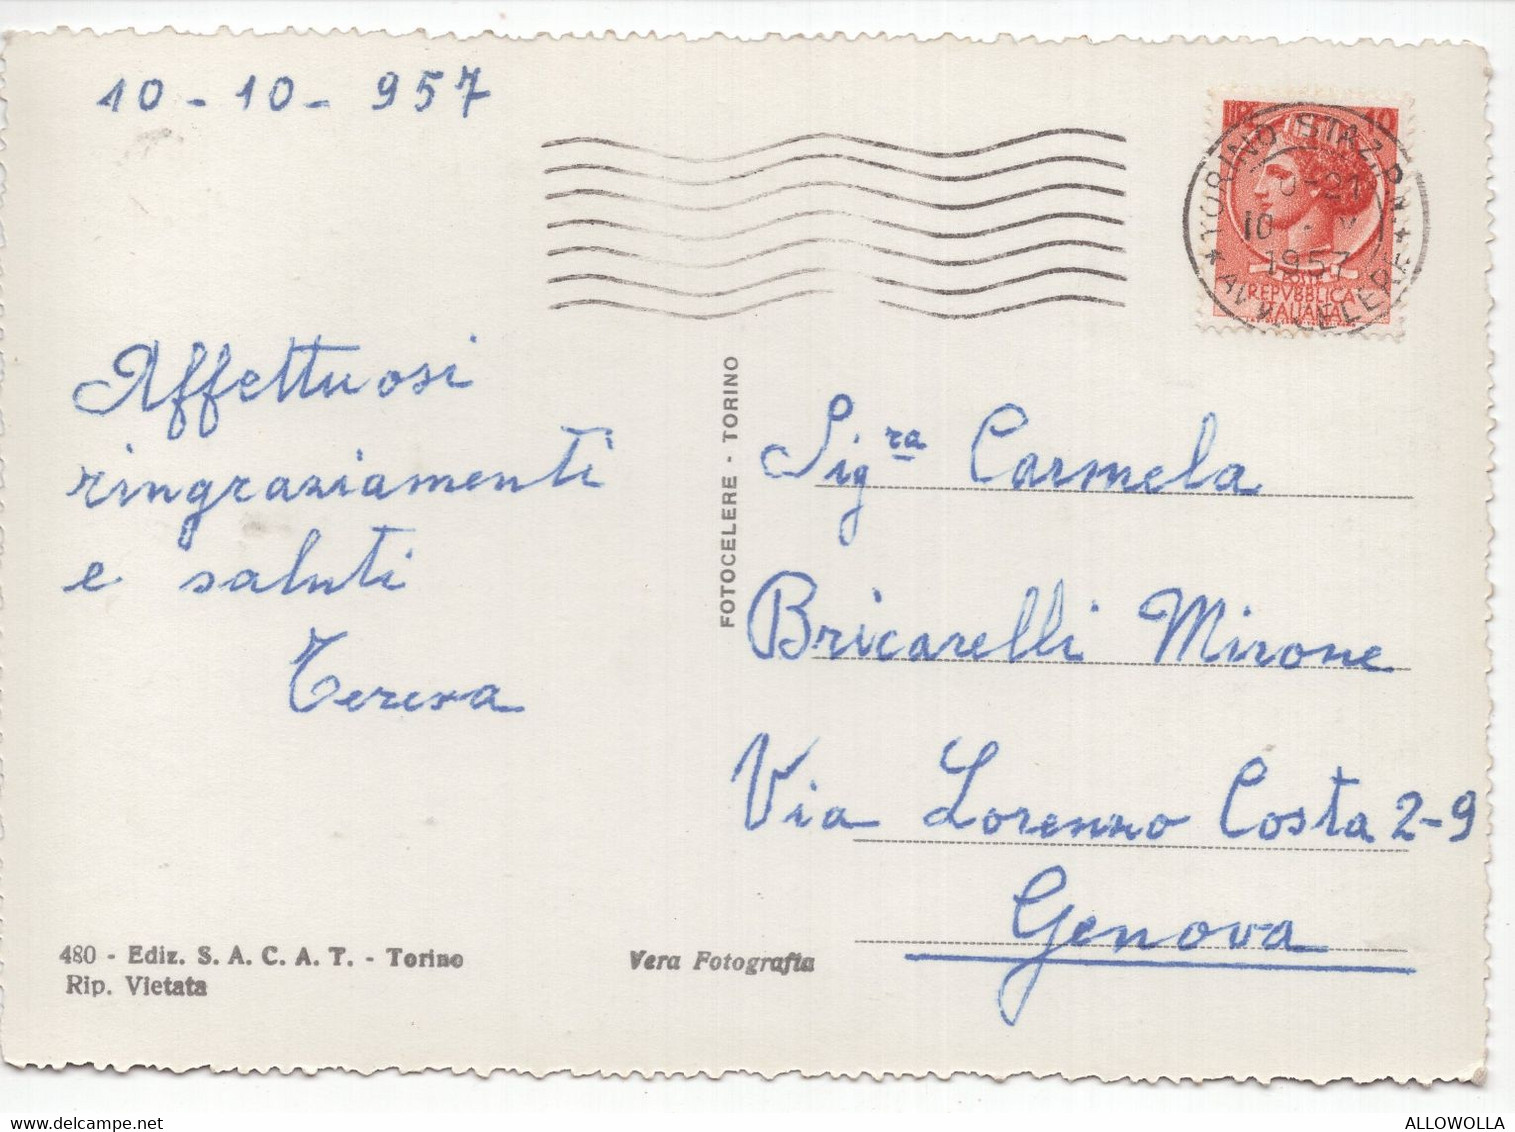 10 - 10 - 957
LIRE 40
TORINO
10
1957
REPVBBLICA
ITALIANA
Affettuosi
ringraziamenti
e saluti
Teresa
FOTOCELERE - TORINO
Sig.ra Carmela
Bricarelli Mirone
Via Lorenzo Costa 2-9
Genova
480 - Ediz. S. A. C. A. T. - Torino
Rip. Vietata
Vera Fotografia
ALLOWOLLA